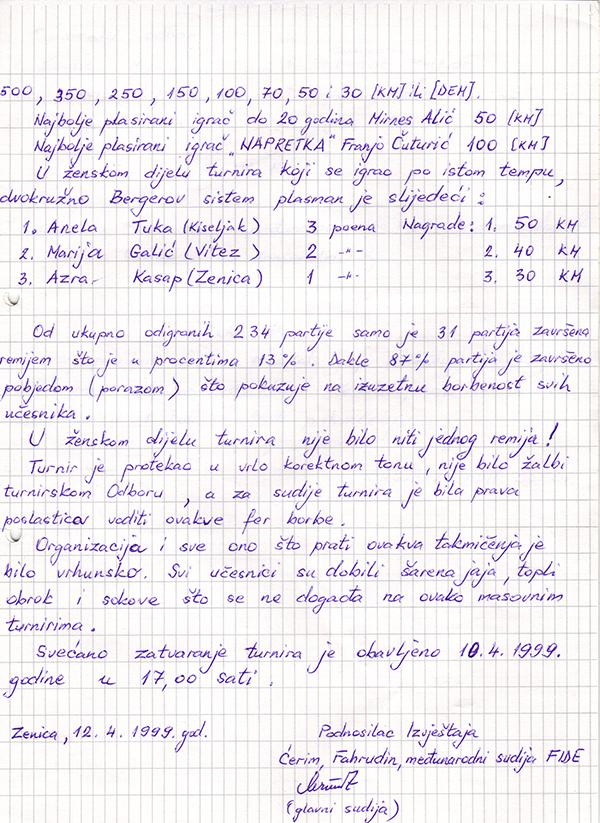 500, 350, 250, 150, 100, 70, 50 i 30 [KM] ili [DEM].
Najbolje plasirani igrač do 20 godina Mirnes Alić 50 [KM]
Najbolje plasirani igrač „NAPRETKA" Franjo Čuturić 100 [KM]
U ženskom dijelu turnira koji se igrao po istom tempu,
dvokružno Bergerov sistem plasman je slijedeći:
1. Anela Tuka (Kiseljak) 3 poena Nagrade: 1. 50 KM
2. Marija Galić (Vitez) 2 -"- 2. 40 KM
3. Azra Kasap (Zenica) 1 -"- 3. 30 KM
Od ukupno odigranih 234 partije samo je 31 partija završena
remijem što je u procentima 13%. Dakle 87% partija je završeno
pobjedom (porazom) što pokazuje na izuzetnu borbenost svih
učesnika.
U ženskom dijelu turnira nije bilo niti jednog remija!
Turnir je protekao u vrlo korektnom tonu, nije bilo žalbi
turnirskom Odboru, a za sudije turnira je bila prava
poslastica voditi ovakve fer borbe.
Organizacija i sve ono što prati ovakva takmičenja je
bilo vrhunsko. Svi učesnici su dobili šarena jaja, topli
obrok i sokove što se ne događa na ovako masovnim
turnirima.
Svečano zatvaranje turnira je obavljeno 10.4.1999.
godine u 17,00 sati.
Zenica, 12.4.1999.god. Podnosilac Izvještaja
Ćerim, Fahrudin, međunarodni sudija FIDE
(glavni sudija)